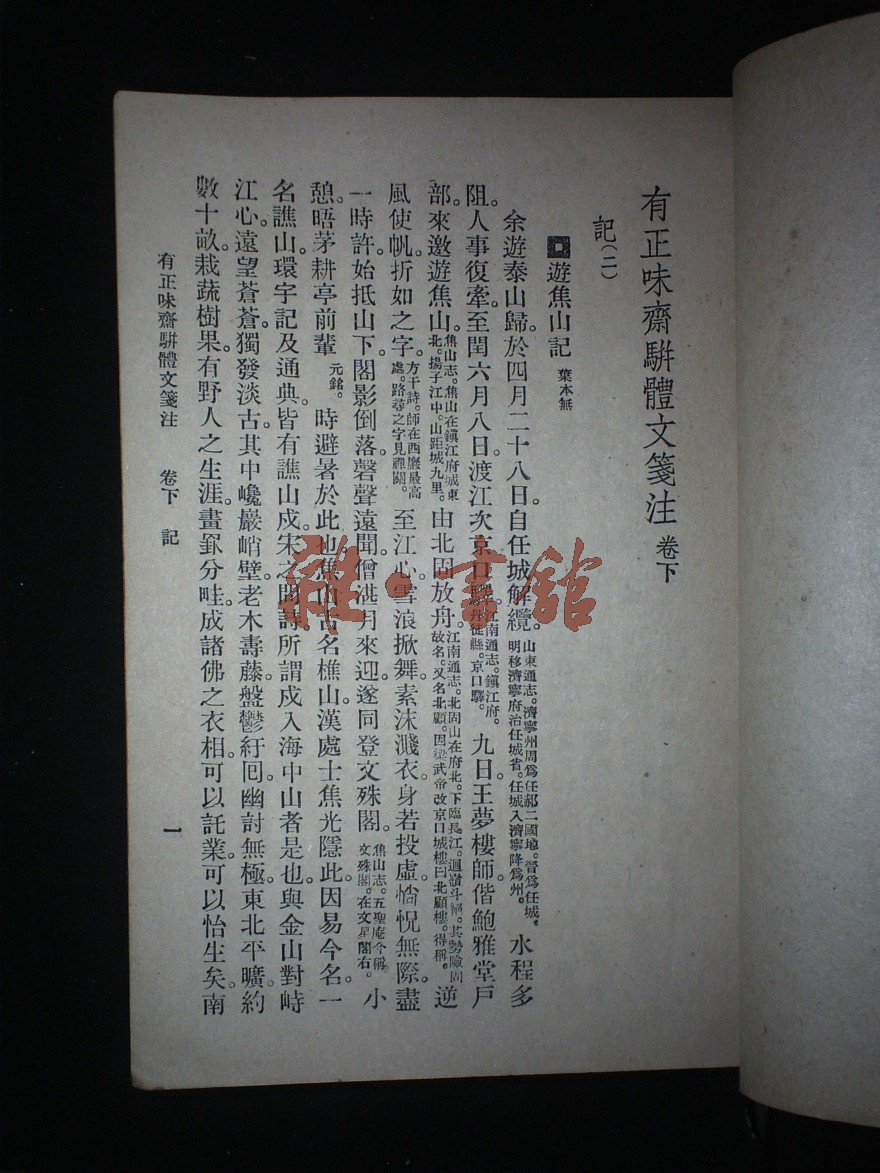 有正味齋駢體文箋注 卷下
記(二)
遊焦山記 葉本無
余遊泰山歸。於四月二十八日自任城解纜。山東通志。濟寧州周爲任郕二國地。晉爲任城。明移濟寧府治任城省。任城入濟寧降爲州。水程多
阻。人事復牽。至閏六月八日渡江次京口驛。江南通志。鎮江府。丹徒縣。京口驛。九日。王夢樓師偕鮑雅堂戶
部。來邀遊焦山。焦山志。焦山在鎮江府城東北。揚子江中。山距城九里。由北固放舟。江南通志。北固山在府北。下臨長江。迴嶺斗絕。其勢險固故名。又名北顧。因梁武帝改京口城樓曰北顧樓。得稱。逆
風使帆。折如之字。方干詩。師在西巖最高處。路尋之字見禪關。至江心。雪浪掀舞。素沫濺衣。身若投虛。惝怳無際。盡
一時許。始抵山下。閣影倒落。磬聲遠聞。僧湛月來迎。遂同登文殊閣。焦山志。五聖庵今稱文殊閣。在文星閣右。小
憩。晤茅耕亭前輩 元銘。時避暑於此也。焦山古名樵山。漢處士焦光隱此。因易今名。一
名譙山。環宇記及通典。皆有譙山戍。宋之問詩。所謂戍入海中山者是也。與金山對峙
江心。遠望蒼蒼。獨發淡古。其中巉巖峭壁。老木壽藤。盤鬱紆囘。幽討無極。東北平曠。約
數十畝。栽蔬樹果。有野人之生涯。畫罫分畦。成諸佛之衣相。可以託業。可以怡生矣。南
有正味齋駢體文箋注 卷下 記 一
雜·書館